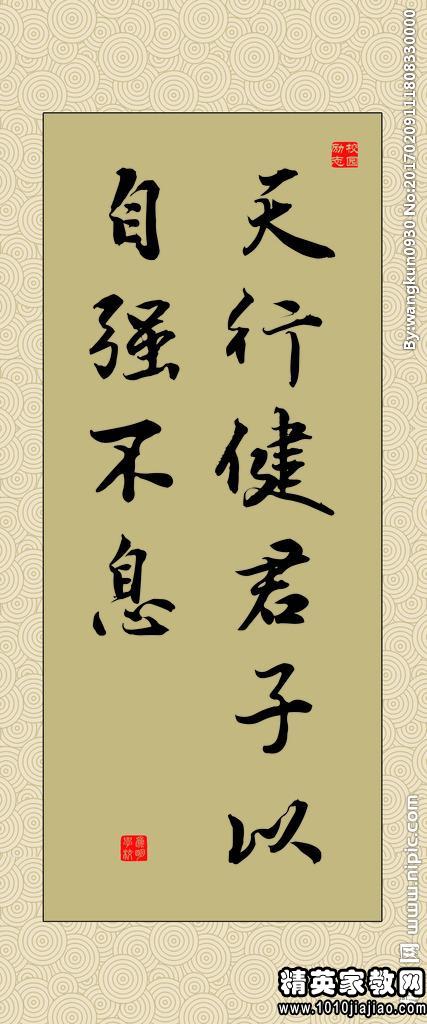 校园
励志
天行健君子以
自强不息
By:wangkun0930 No:20170209111808330000
www.nipic.com
精英家教网
www.1010jiajiao.com